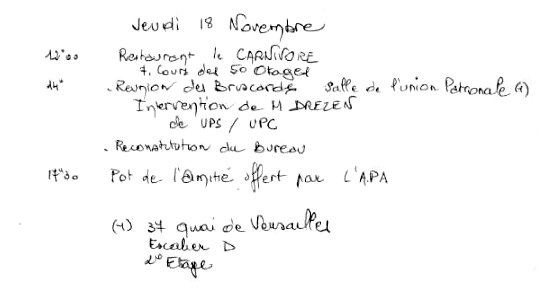 Jeudi 18 Novembre
12h00 Restaurant le CARNIVORE
7, Cours des 50 Otages
14h . Reunion des Bruscards Salle de l'union Patronale (1)
Intervention de M DREZEN
de UPS / UPC
. Reconstitution du Bureau
17h30 Pot de l'Amitié offert par L'APA
(1) 37 quai de Versailles
Escalier D
2e Etage